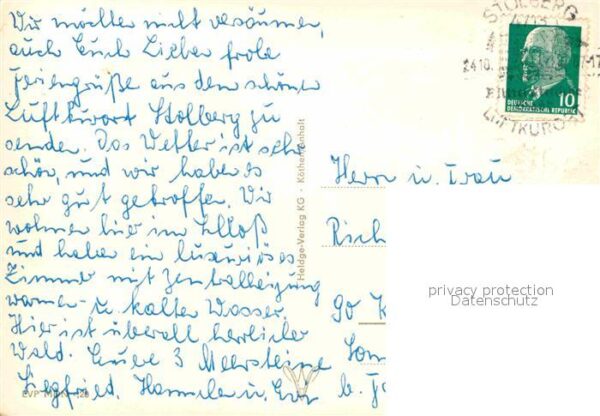 Wir möchten nicht versäumen,
auch Euch Lieben frohe
Feriengrüße aus dem schönen
Luftkurort Stolberg zu
senden. Das Wetter ist sehr
schön, und wir haben es
sehr gut getroffen. Wir
wohnen hier im Schloß
und haben ein luxuriöses
Zimmer mit Zentralheizung
warmen- u. kalten Wasser.
Hier ist überall herrlicher
Wald. Eure 3 Meersteine
Siegfried, u. Eva
EVP MDN
Heldge-Verlag KG · Köthen-Anhalt
STOLBERG
24.10.
LUFTKURORT
10
DEUTSCHE
DEMOKRATISCHE REPUBLIK
Herrn u. Frau
Rich
90 K
b.
privacy protection
Datenschutz